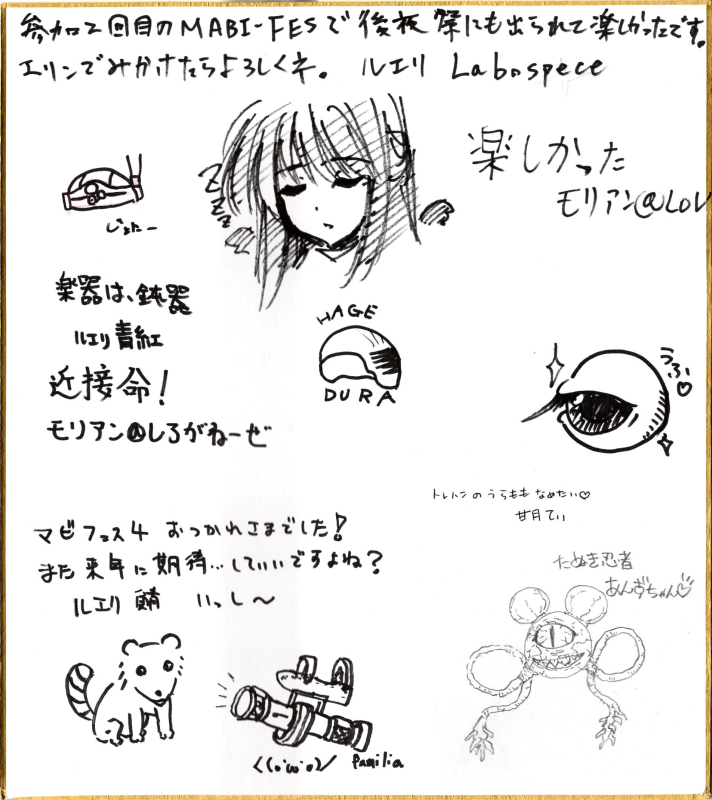 参加2回目のMABI-FESで後夜祭にも出られて楽しかったです。
エリンでみかけたらよろしくネ。 ルエリ Labospece
楽しかった
モリアン@Lov
じょたー
楽器は、鈍器
ルエリ青紅
近接命!
モリアン@しろがねーぜ
HAGE
DURA
うふぃ♡
トレハンのうらももなめたい♡
甘月てぃ
マビフェス4 おつかれさまでした!
また来年に期待…していいですよね?
ルエリ 鯖 いっし〜
たぬき忍者
あんずちゃん♡
ZZZZ
Pamilia